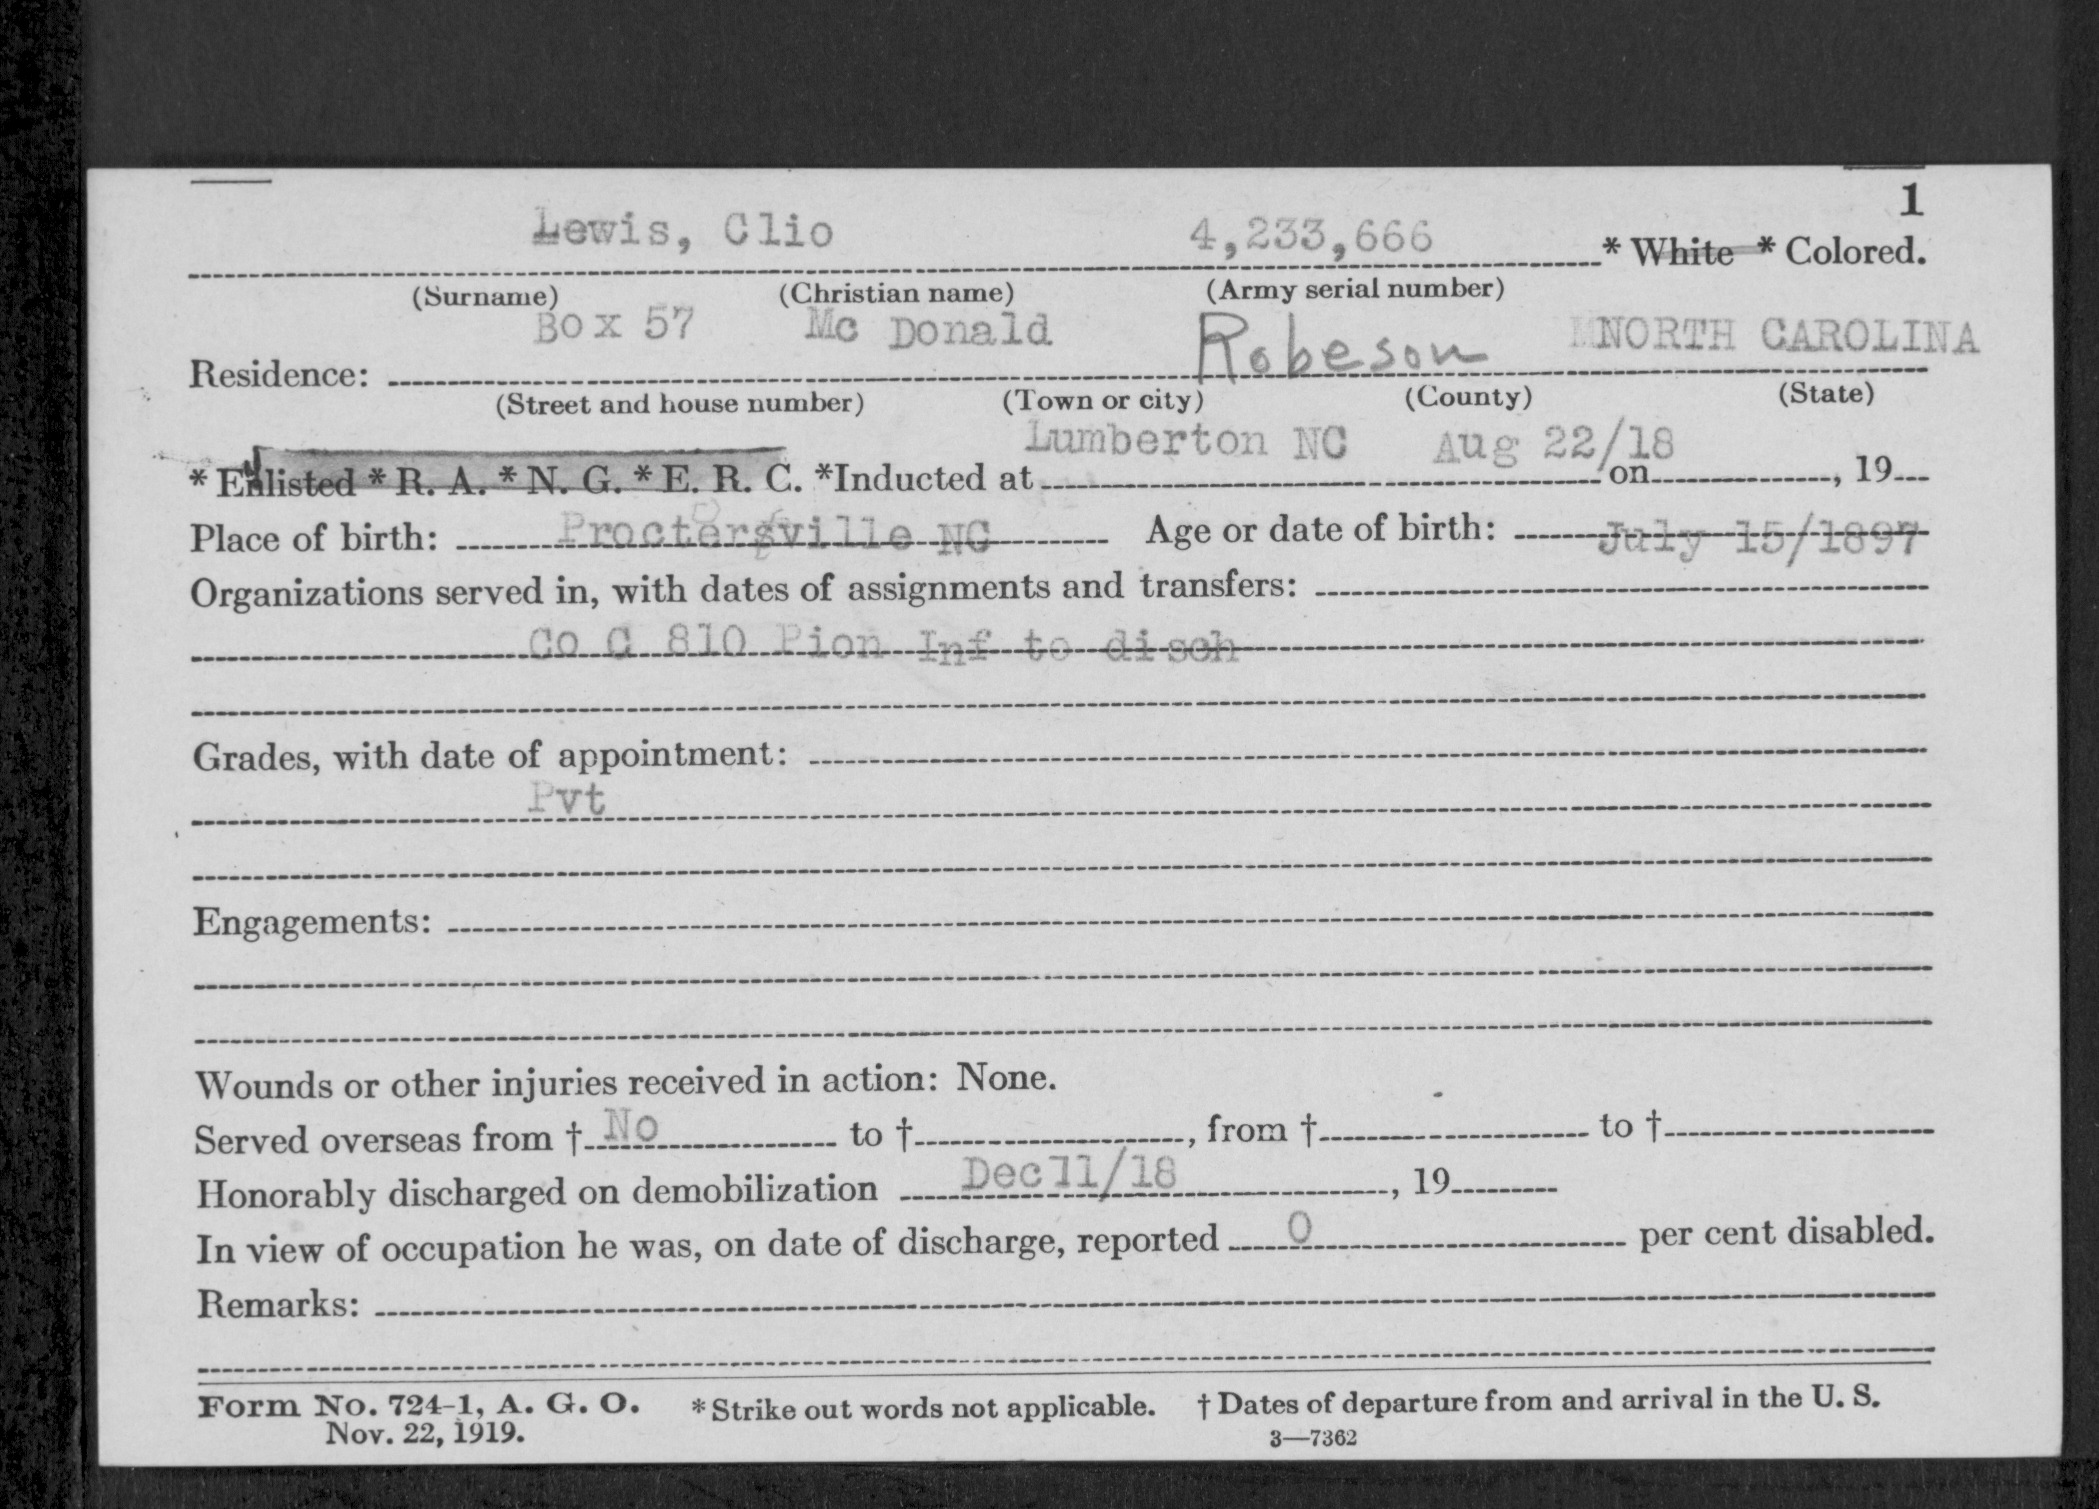 1
Lewis, Clio 4,233,666 * White * Colored.
(Surname) (Christian name) (Army serial number)
Box 57 Mc Donald Robeson NORTH CAROLINA
Residence:
(Street and house number) (Town or city) (County) (State)
Lumberton NC Aug 22/18
* Enlisted * R. A. * N. G. * E. R. C. *Inducted at on , 19
Place of birth: Proctersville NC Age or date of birth: July 15/1897
Organizations served in, with dates of assignments and transfers:
Co C 810 Pion Inf to disch
Grades, with date of appointment:
Pvt
Engagements:
Wounds or other injuries received in action: None.
Served overseas from † No to † , from † to †
Honorably discharged on demobilization Dec 11/18 , 19
In view of occupation he was, on date of discharge, reported 0 per cent disabled.
Remarks:
Form No. 724-1, A. G. O. * Strike out words not applicable. † Dates of departure from and arrival in the U. S.
Nov. 22, 1919. 3—7362